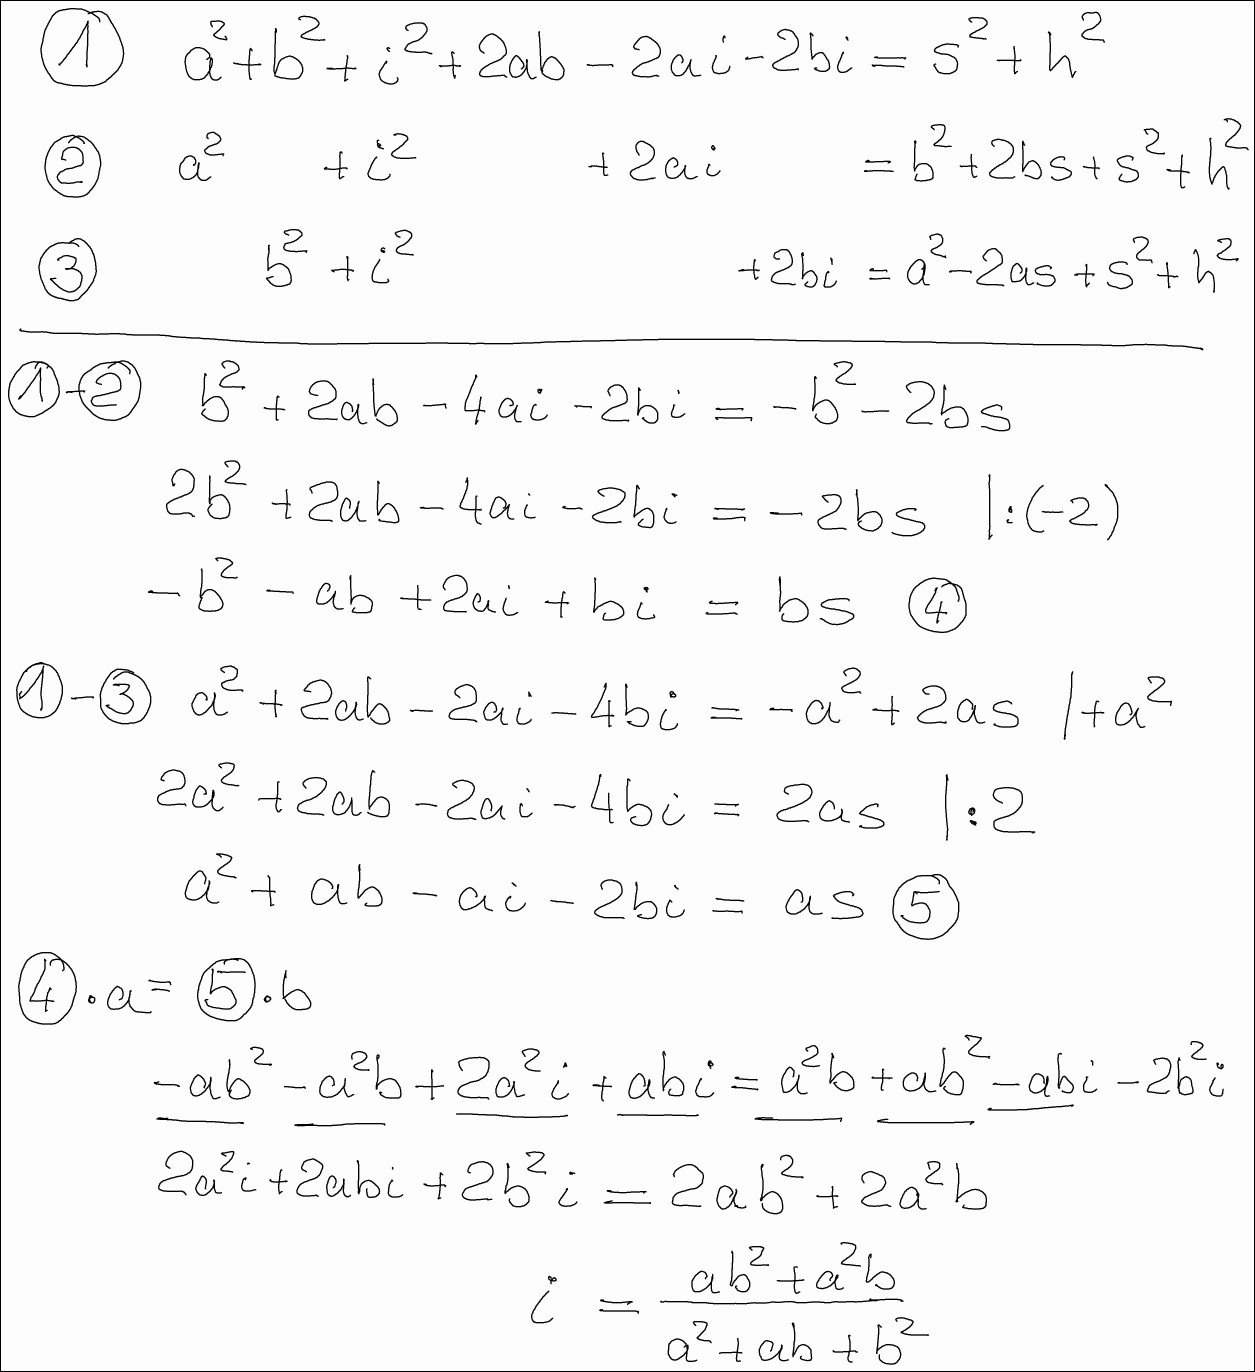 ① a²+b²+i²+2ab-2ai-2bi=s²+h²
② a² +i² +2ai =b²+2bs+s²+h²
③ b²+i² +2bi=a²-2as+s²+h²
①-② b²+2ab-4ai-2bi=-b²-2bs
2b²+2ab-4ai-2bi=-2bs |:(-2)
-b²-ab+2ai+bi=bs ④
①-③ a²+2ab-2ai-4bi=-a²+2as |+a²
2a²+2ab-2ai-4bi=2as |:2
a²+ab-ai-2bi=as ⑤
④·a=⑤·b
-ab²-a²b+2a²i+abi=a²b+ab²-abi-2b²i
2a²i+2abi+2b²i=2ab²+2a²b
i = ab²+a²b
a²+ab+b²